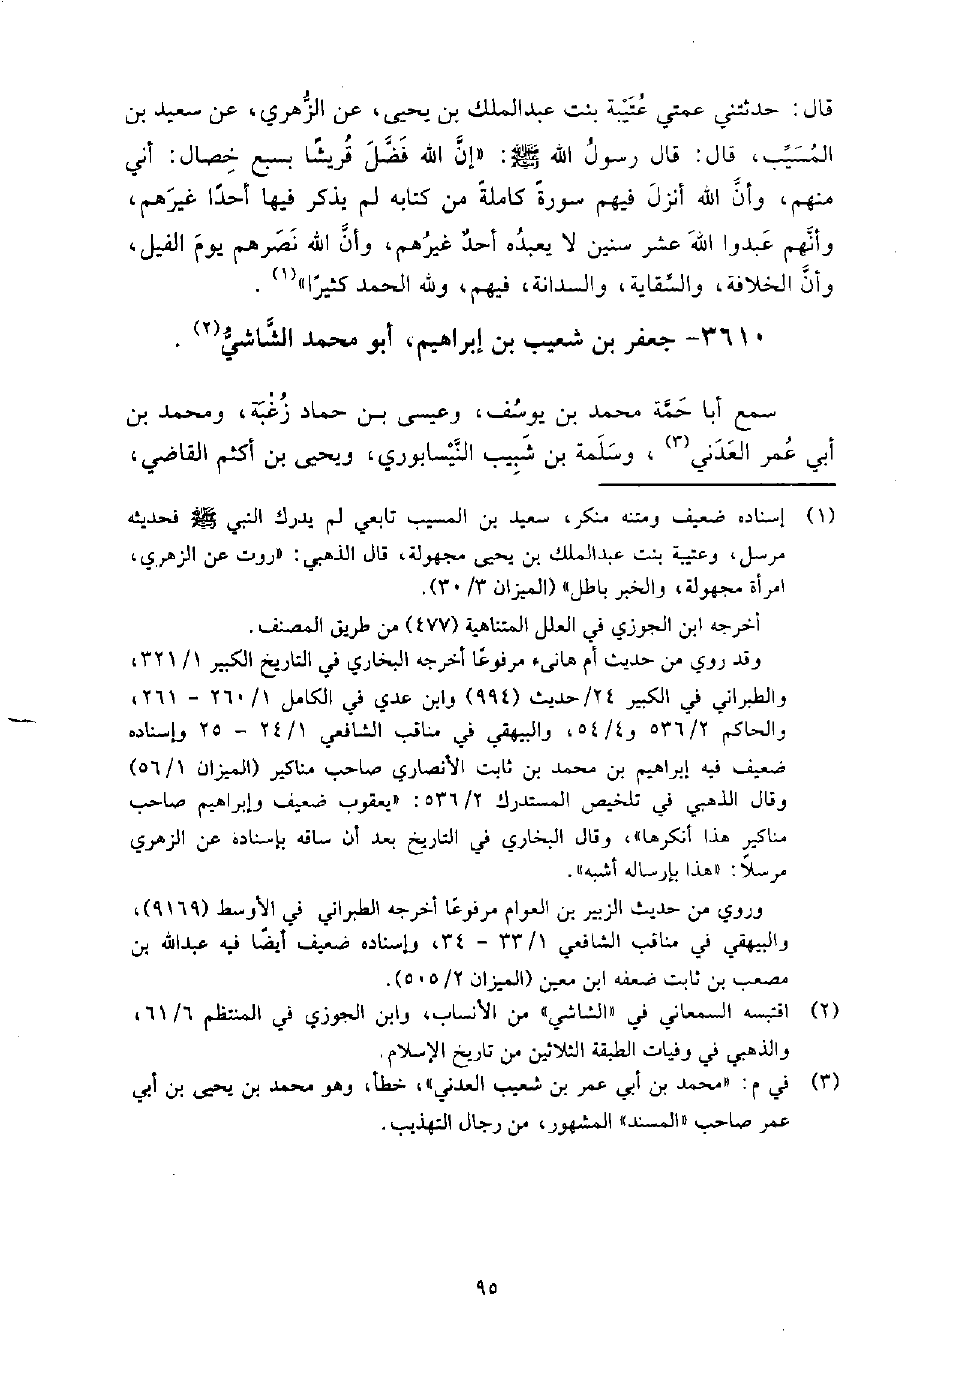 قال: حدثتني عمتي عُتَيْبة بنت عبدالملك بن يحيى، عن الزُّهري، عن سعيد بن
المُسَيِّب، قال: قال رسولُ الله ﷺ: «إنَّ الله فَضَّلَ قُريشًا بسبع خِصال: أني
منهم، وأنَّ الله أنزلَ فيهم سورةً كاملةً من كتابه لم يذكر فيها أحدًا غيرَهم،
وأنَّهم عَبدوا اللهَ عشر سنين لا يعبدُه أحدٌ غيرُهم، وأنَّ الله نَصَرهم يومَ الفيل،
وأنَّ الخلافة، والسِّقاية، والسدانة، فيهم، ولله الحمد كثيرًا»(١) .
٣٦١٠- جعفر بن شعيب بن إبراهيم، أبو محمد الشَّاشيُّ(٢) .
سمع أبا حَمَّة محمد بن يوسُف، وعيسى بن حماد زُغْبَة، ومحمد بن
أبي عُمر العَدَني(٣) ، وسَلَمة بن شَبِيب النَّيْسابوري، ويحيى بن أكثم القاضي،
(١) إسناده ضعيف ومتنه منكر، سعيد بن المسيب تابعي لم يدرك النبي ﷺ فحديثه
مرسل، وعتيبة بنت عبدالملك بن يحيى مجهولة، قال الذهبي: «روت عن الزهري،
امرأة مجهولة، والخبر باطل» (الميزان ٣/ ٣٠).
أخرجه ابن الجوزي في العلل المتناهية (٤٧٧) من طريق المصنف.
وقد روي من حديث أم هانىء مرفوعًا أخرجه البخاري في التاريخ الكبير ١/ ٣٢١،
والطبراني في الكبير ٢٤/ حديث (٩٩٤) وابن عدي في الكامل ١/ ٢٦٠ - ٢٦١،
والحاكم ٢/ ٥٣٦ و٤/ ٥٤، والبيهقي في مناقب الشافعي ١/ ٢٤ - ٢٥ وإسناده
ضعيف فيه إبراهيم بن محمد بن ثابت الأنصاري صاحب مناكير (الميزان ١/ ٥٦)
وقال الذهبي في تلخيص المستدرك ٢/ ٥٣٦: «يعقوب ضعيف وإبراهيم صاحب
مناكير هذا أنكرها»، وقال البخاري في التاريخ بعد أن ساقه بإسناده عن الزهري
مرسلاً: «هذا بإرساله أشبه».
وروي من حديث الزبير بن العوام مرفوعًا أخرجه الطبراني في الأوسط (٩١٦٩)،
والبيهقي في مناقب الشافعي ١/ ٣٣ - ٣٤، وإسناده ضعيف أيضًا فيه عبدالله بن
مصعب بن ثابت ضعفه ابن معين (الميزان ٢/ ٥٠٥).
(٢) اقتبسه السمعاني في «الشاشي» من الأنساب، وابن الجوزي في المنتظم ٦/ ٦١،
والذهبي في وفيات الطبقة الثلاثين من تاريخ الإسلام.
(٣) في م: «محمد بن أبي عمر بن شعيب العدني»، خطأ، وهو محمد بن يحيى بن أبي
عمر صاحب «المسند» المشهور، من رجال التهذيب.
٩٥